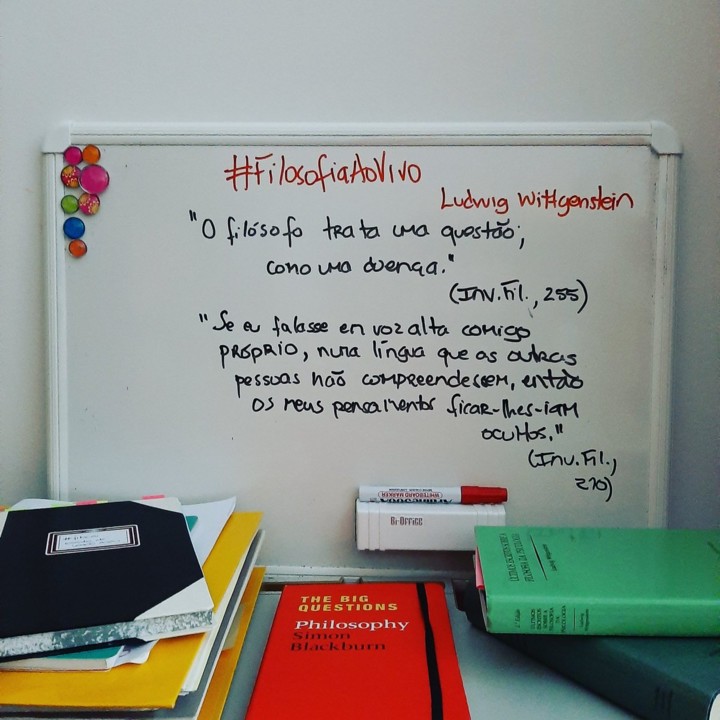 #FilosofiaAoVivo
Ludwig Wittgenstein
"O filósofo trata uma questão;
como uma doença."
(Inv. Fil., 255)
"Se eu falasse em voz alta comigo
PRÓPRIO, numa língua que as outras
pessoas não compreendessem, então
os meus pensamentos ficar-lhes-iam
ocultos."
(Inv. Fil.,
270)
WHITEBOARD MARKER
Bi-Office
THE BIG
QUESTIONS
Philosophy
Simon
Blackburn
ÚLTIMOS ESCRITOS SOBRE A
FILOSOFIA DA PSICOLOGIA
Ludwig Wittgenstein